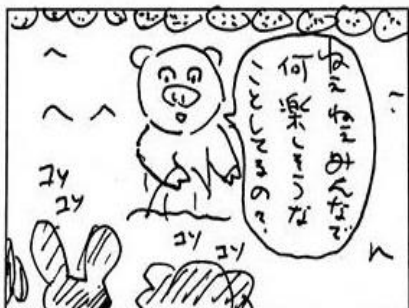 ねぇねぇみんなで
何楽しそうな
ことしてるの?
コソ
コソ
コソ
コソ